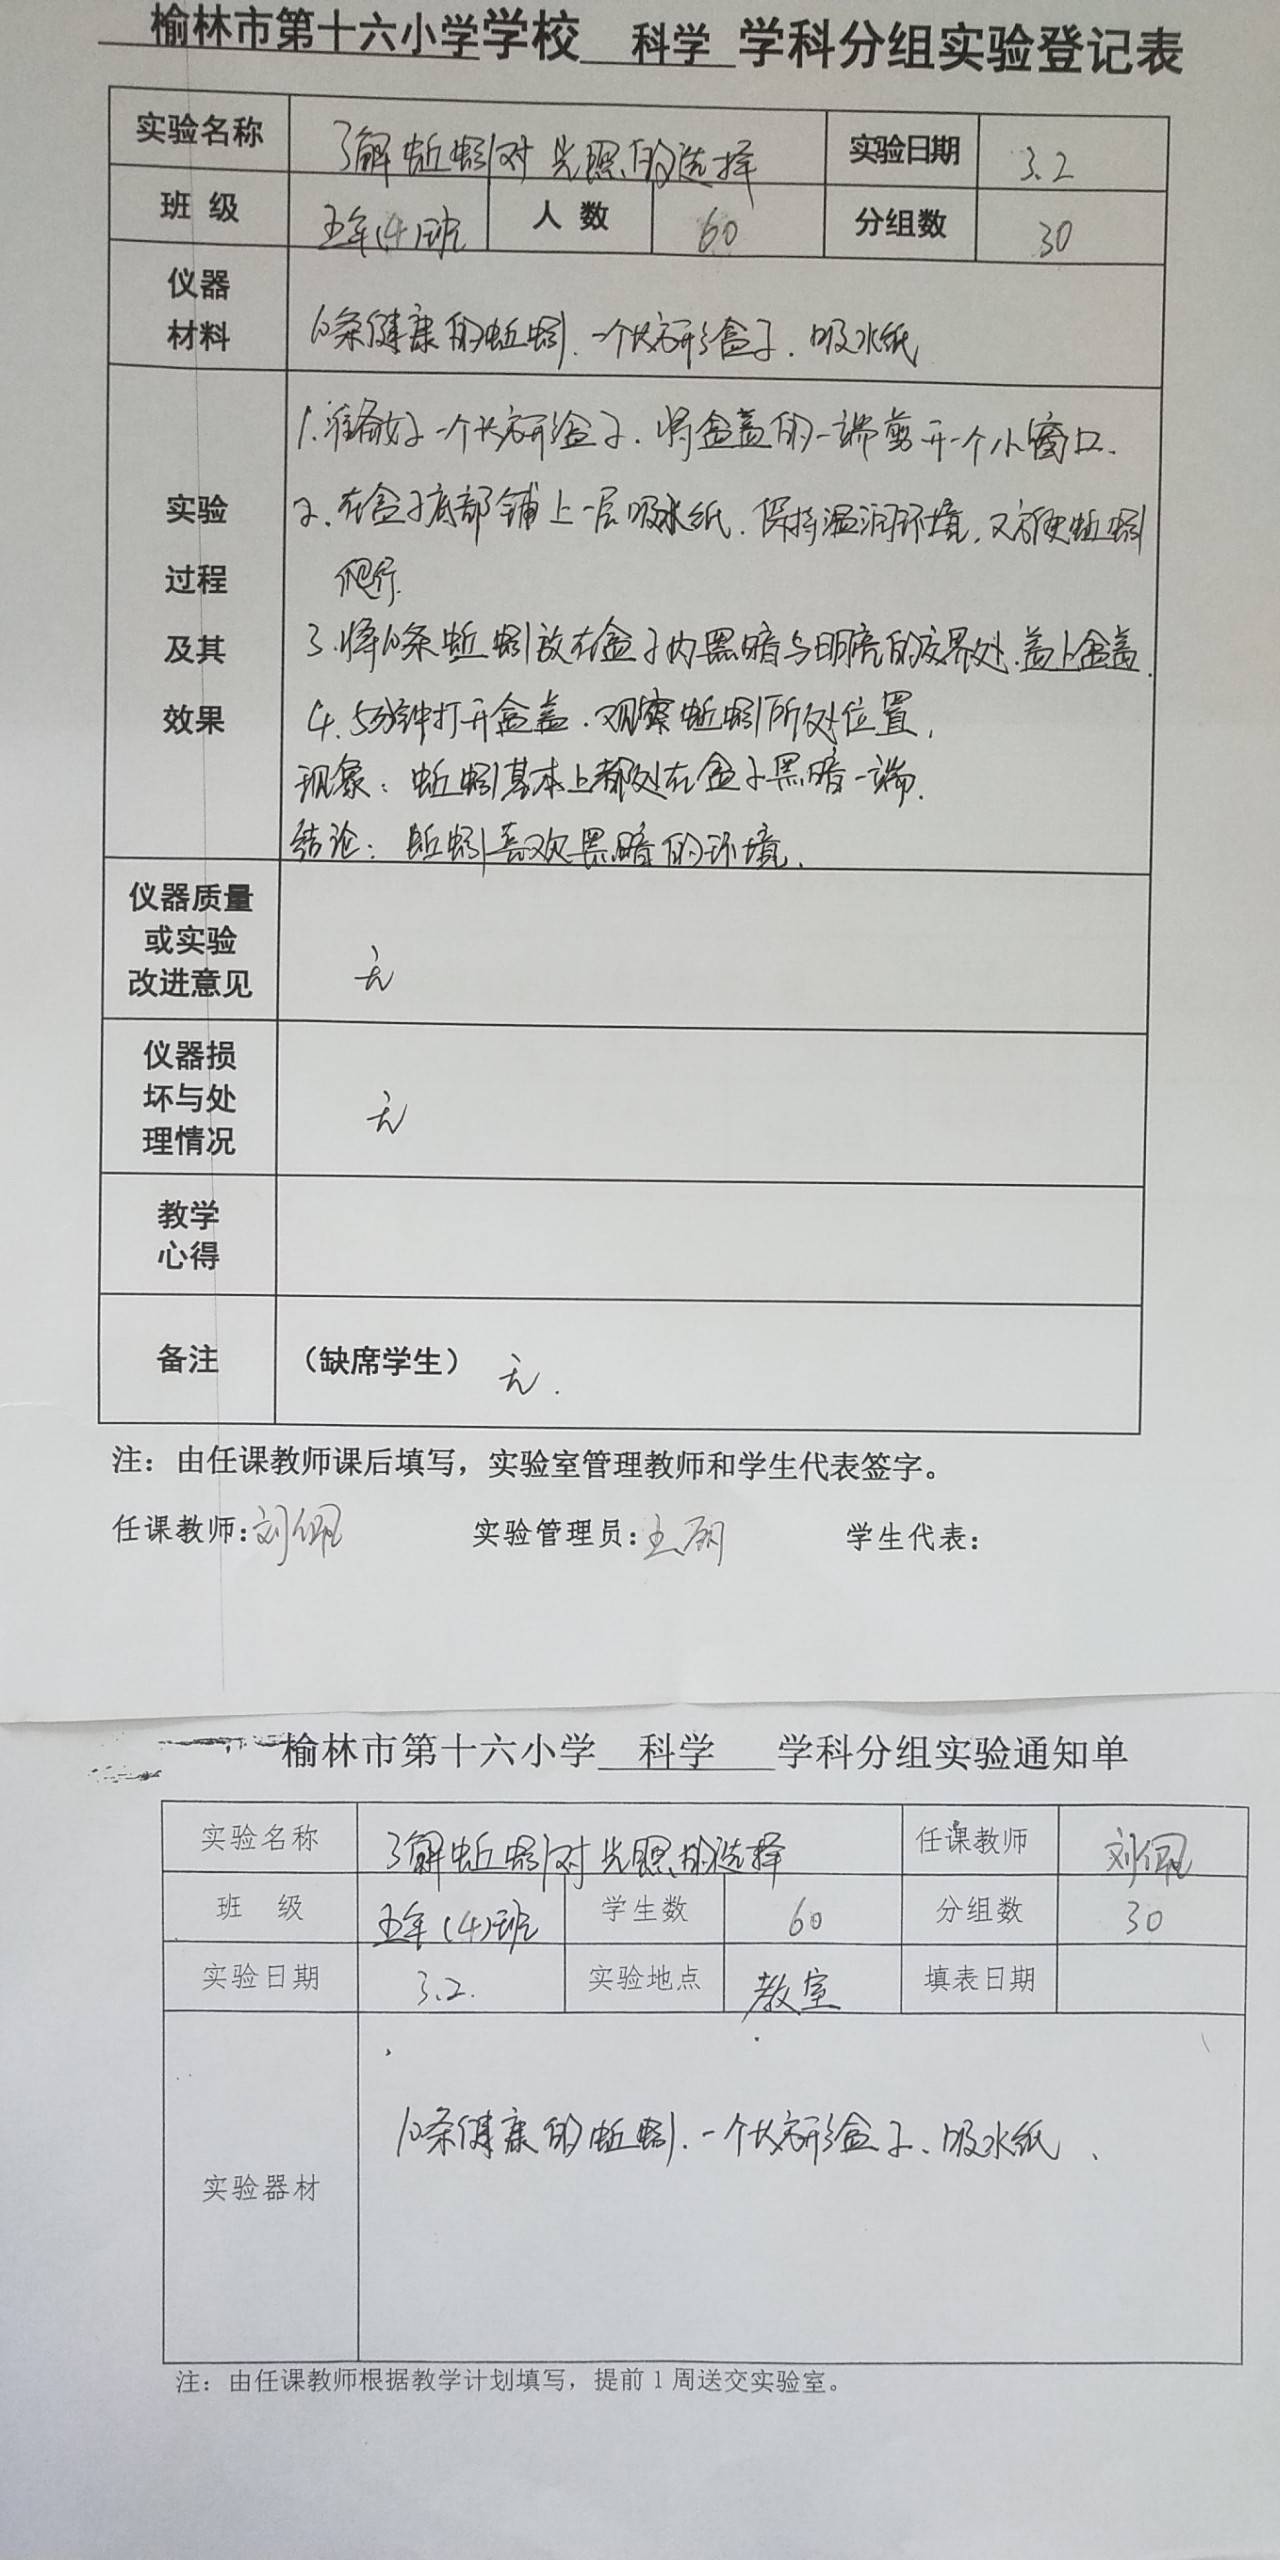 榆林市第十六小学学校 科学 学科分组实验登记表
实验名称 了解蚯蚓对光照的选择 实验日期 3.2
班 级 五年(4)班 人 数 60 分组数 30
仪器
材料
10条健康的蚯蚓、一个长方形盒子、吸水纸
1.准备好一个长方形盒子,将盒盖的一端剪开一个小窗口.
实验
过程
及其
效果
2.在盒子底部铺上一层吸水纸.保持湿润环境,又方便蚯蚓
爬行.
3.将10条蚯蚓放在盒子内黑暗与明亮的交界处.盖上盒盖.
4.5分钟打开盒盖.观察蚯蚓所处位置.
现象:蚯蚓基本上都处在盒子黑暗一端.
结论:蚯蚓喜欢黑暗的环境.
仪器质量
或实验
改进意见
无
仪器损
坏与处
理情况
无
教学
心得
备注 (缺席学生) 无.
注:由任课教师课后填写,实验室管理教师和学生代表签字。
任课教师:刘佩 实验管理员:王丽 学生代表:
榆林市第十六小学 科学 学科分组实验通知单
实验名称 了解蚯蚓对光照的选择 任课教师 刘佩
班 级 五年(4)班 学生数 60 分组数 30
实验日期 3.2. 实验地点 教室 填表日期
实验器材 10条健康的蚯蚓、一个长方形盒子、吸水纸、
注:由任课教师根据教学计划填写,提前1周送交实验室。